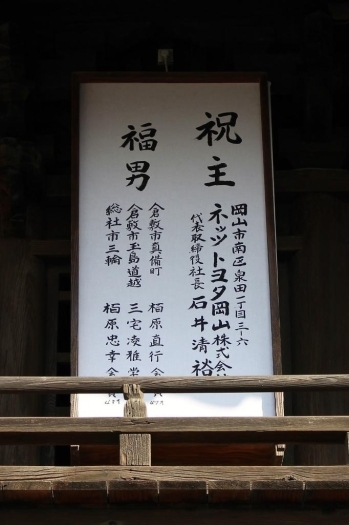 祝主
岡山市南区泉田一丁目三-六
ネッツトヨタ岡山株式会
代表取締役社長 石井清裕
福男
倉敷市真備町 栢原直行
倉敷市玉島道越 三宅凌雅
総社市三輪 栢原忠幸